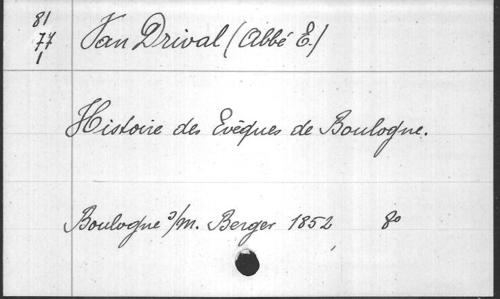 81
77
1
Van Drival (Abbé E.)
Histoire des Evèques de Boulogne.
Boulogne s/m. Berger 1852 8o